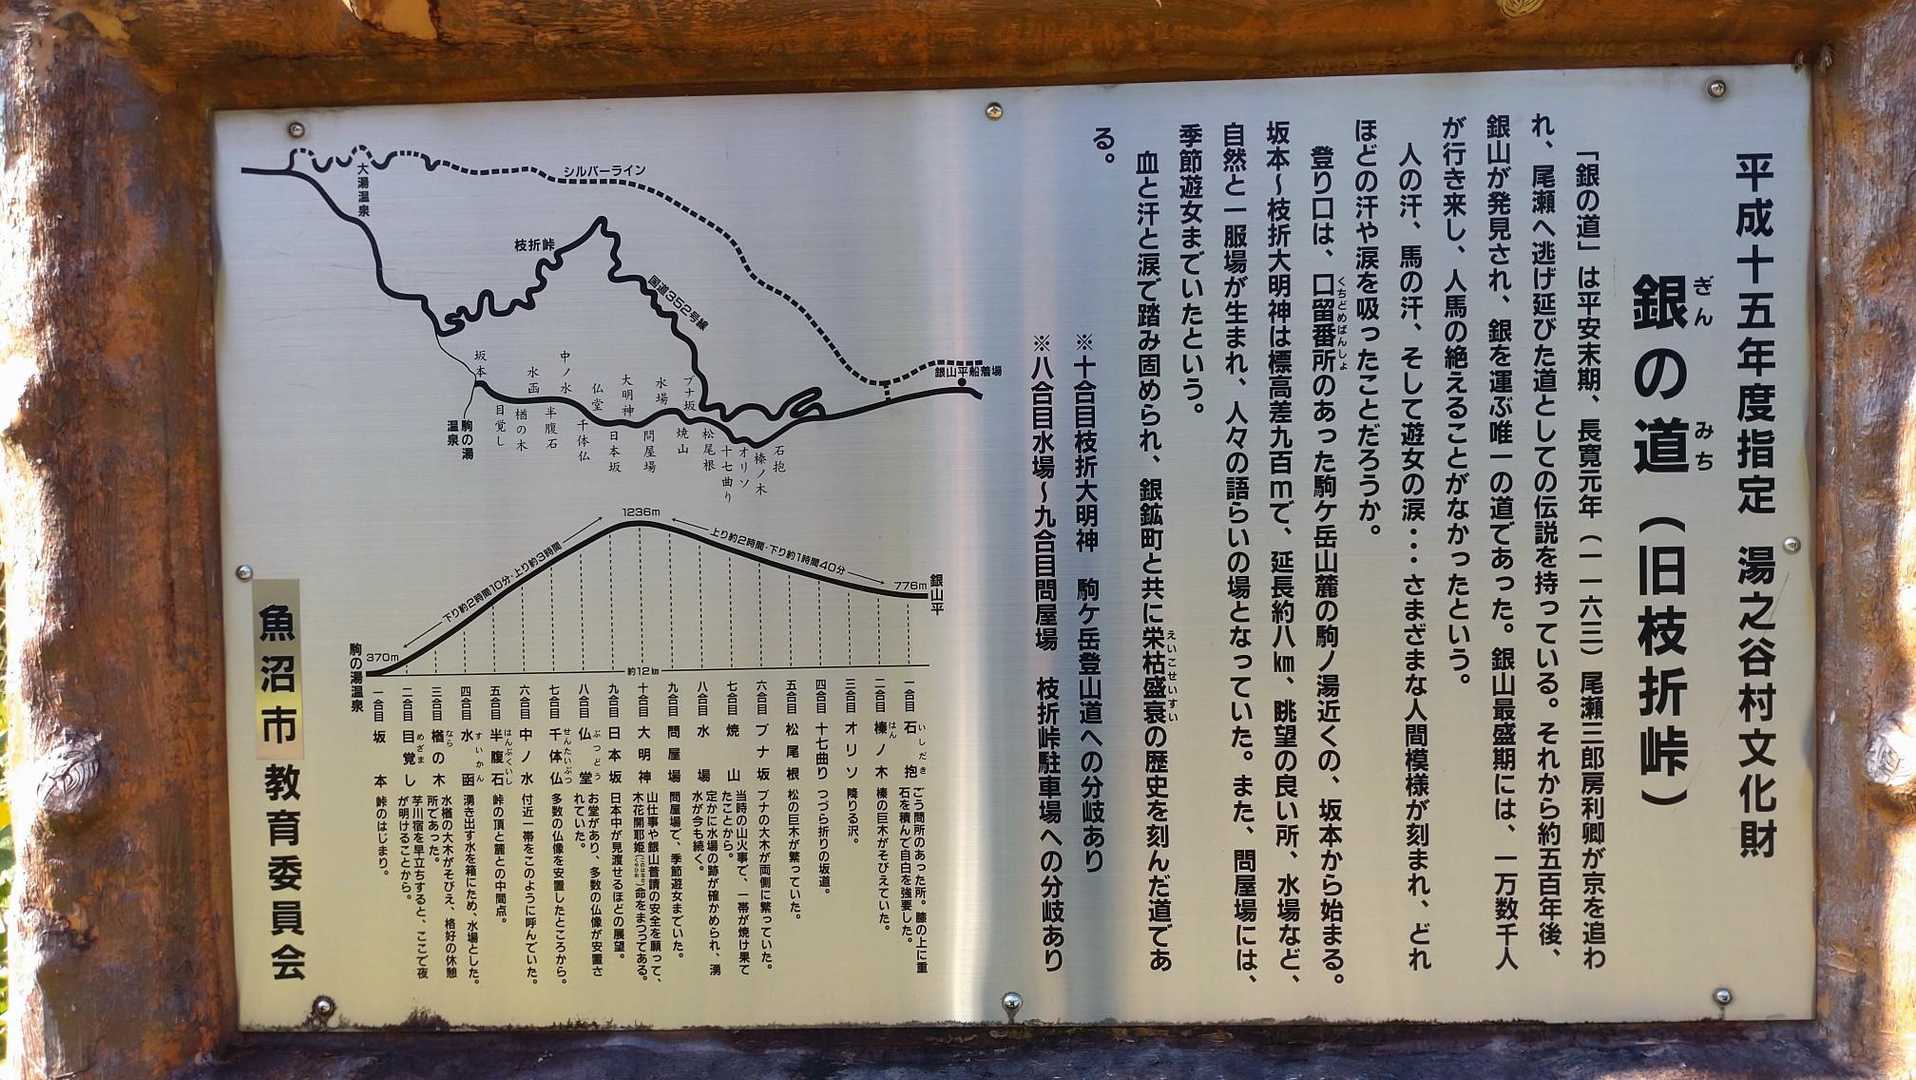 平成十五年度指定 湯之谷村文化財
銀の道（旧枝折峠）
ぎん みち
「銀の道」は平安末期、長寛元年（一一六三）尾瀬三郎房利卿が京を追わ
れ、尾瀬へ逃げ延びた道としての伝説を持っている。それから約五百年後、
銀山が発見され、銀を運ぶ唯一の道であった。銀山最盛期には、一万数千人
が行き来し、人馬の絶えることがなかったという。
人の汗、馬の汗、そして遊女の涙・・・さまざまな人間模様が刻まれ、どれ
ほどの汗や涙を吸ったことだろうか。
登り口は、口留番所のあった駒ケ岳山麓の駒ノ湯近くの、坂本から始まる。
くちどめばんしょ
坂本～枝折大明神は標高差九百mで、延長約八㎞、眺望の良い所、水場など、
自然と一服場が生まれ、人々の語らいの場となっていた。また、問屋場には、
季節遊女までいたという。
血と汗と涙で踏み固められ、銀鉱町と共に栄枯盛衰の歴史を刻んだ道であ
えいこせいすい
る。
※十合目枝折大明神 駒ケ岳登山道への分岐あり
※八合目水場～九合目問屋場 枝折峠駐車場への分岐あり
大湯温泉
シルバーライン
枝折峠
国道352号線
銀山平船着場
駒の湯温泉
坂本
目覚し
楢の木
水函
半腹石
中ノ水
千体仏
仏堂
日本坂
大明神
問屋場
水場
焼山
ブナ坂
松尾根
十七曲り
オリソ
榛ノ木
石抱
1236m
下り約2時間10分・上り約3時間
上り約2時間・下り約1時間40分
776m
銀山平
370m
駒の湯温泉
約12㎞
一合目 石抱 ごう問所のあった所。膝の上に重
いしだき
石を積んで自白を強要した。
二合目 榛ノ木 榛の巨木がそびえていた。
はん
三合目 オリソ 降りる沢。
四合目 十七曲り つづら折りの坂道。
五合目 松尾根 松の巨木が繁っていた。
六合目 ブナ坂 ブナの大木が両側に繁っていた。
七合目 焼山 当時の山火事で、一帯が焼け果て
たことから。
八合目 水場 定かに水場の跡が確かめられ、湧
水が今も続く。
九合目 問屋場 問屋場で、季節遊女までいた。
十合目 大明神 山仕事や銀山普請の安全を願って、
木花開耶姫命をまつってある。
九合目 日本坂 日本中が見渡せるほどの展望。
八合目 仏堂 お堂があり、多数の仏像が安置さ
ぶつどう
れていた。
七合目 千体仏 多数の仏像を安置したところから。
せんたいぶつ
六合目 中ノ水 付近一帯をこのように呼んでいた。
五合目 半腹石 峠の頂と麓との中間点。
はんぷくいし
四合目 水函 湧き出す水を箱にため、水場とした。
すいかん
三合目 楢の木 水楢の大木がそびえ、格好の休憩
なら
所であった。
二合目 目覚し 芋川宿を早立ちすると、ここで夜
めざま
が明けることから。
一合目 坂本 峠のはじまり。
魚沼市教育委員会